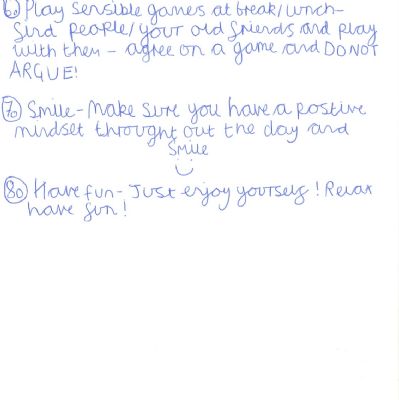 6. Play sensible games at break/lunch-
find people/your old friends and play
with them - agree on a game and DO NOT
ARGUE!
7. Smile - Make sure you have a postive
mindset throught out the day and
smile
8. Have fun - Just enjoy yourself! Relax
have fun!